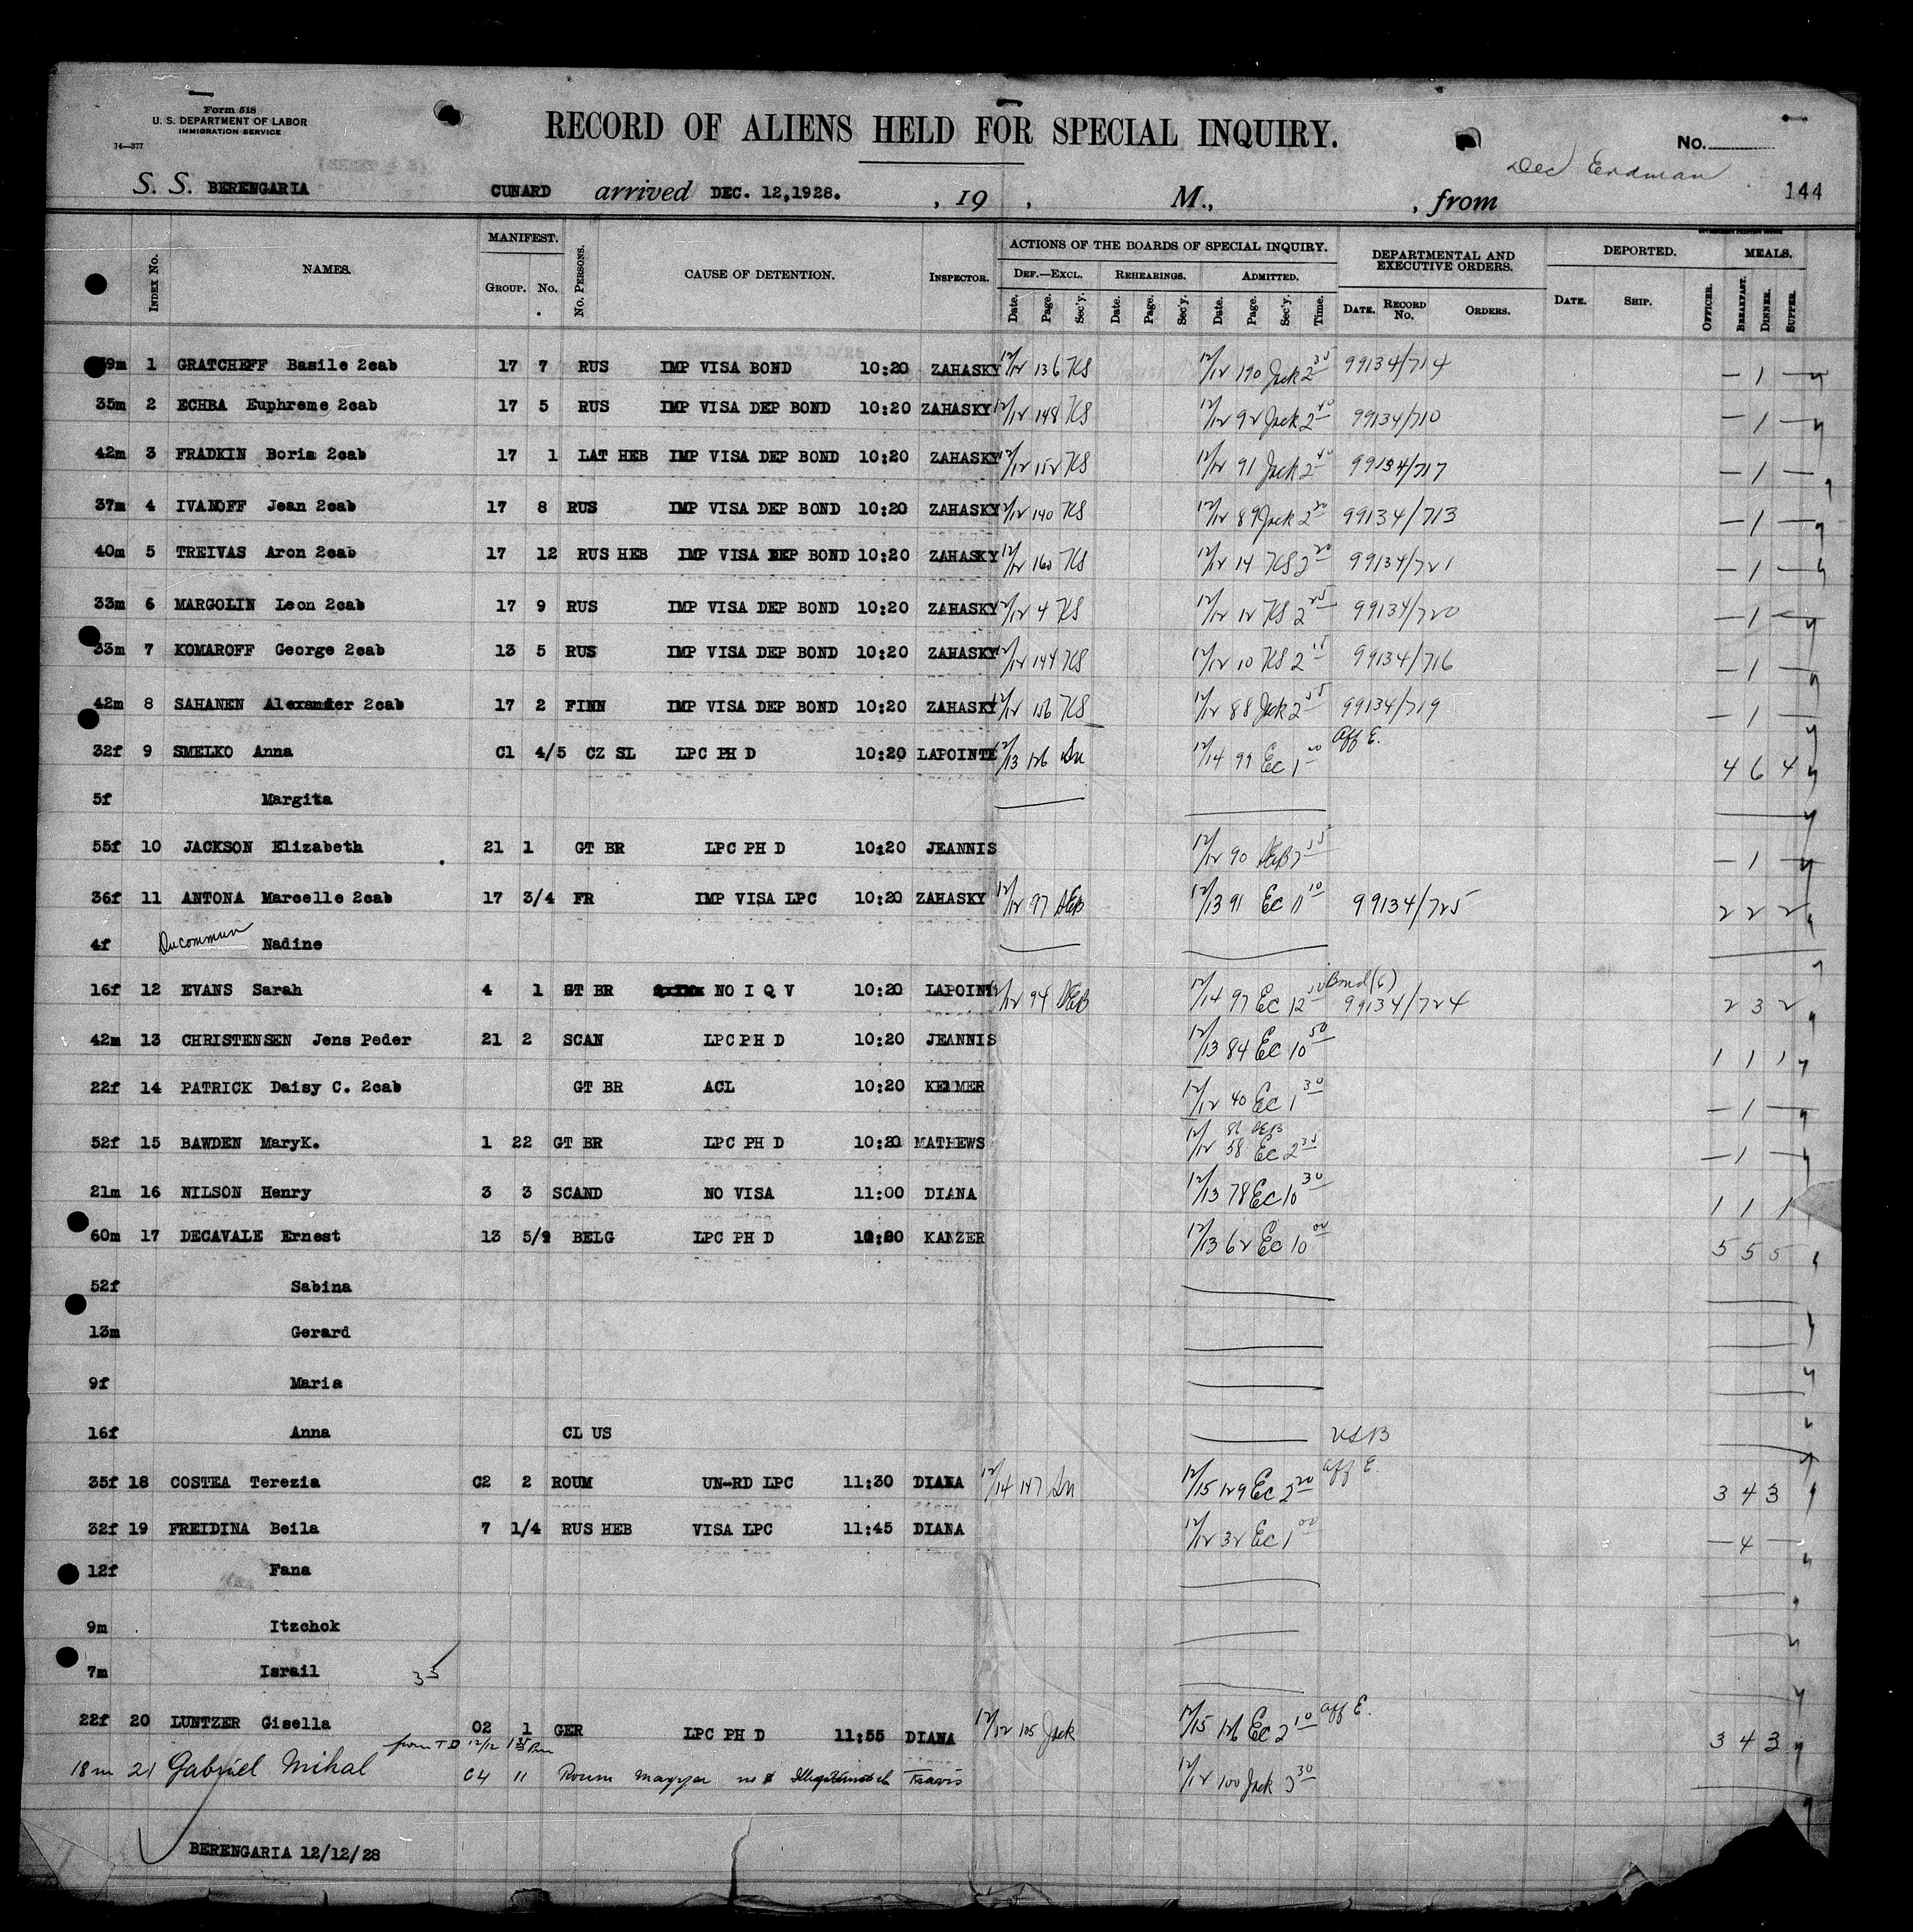 Form 518
U. S. DEPARTMENT OF LABOR
IMMIGRATION SERVICE
14—377
RECORD OF ALIENS HELD FOR SPECIAL INQUIRY.
No.
Dec Erdman
144
S. S. BERENGARIA CUNARD arrived DEC. 12,1928. , 19 , M., , from
INDEX No. NAMES. MANIFEST. GROUP. No. No. PERSONS. CAUSE OF DETENTION. INSPECTOR. ACTIONS OF THE BOARDS OF SPECIAL INQUIRY. DEPARTMENTAL AND EXECUTIVE ORDERS. DEPORTED. MEALS.
DEF.—EXCL. REHEARINGS. ADMITTED.
Date. Page. Sec'y. Date. Page. Sec'y. Date. Page. Sec'y. Time. DATE. RECORD No. ORDERS. DATE. SHIP. OFFICER. BREAKFAST. DINNER. SUPPER.
39m 1 GRATCHEFF Basile 2cab 17 7 RUS IMP VISA BOND 10:20 ZAHASKY 12/12 136 KS 12/12 190 Jack 2 35 99134/714 — 1 —
35m 2 ECHBA Euphreme 2cab 17 5 RUS IMP VISA DEP BOND 10:20 ZAHASKY 12/12 148 KS 12/12 92 Jack 2 40 99134/710 — 1 —
42m 3 FRADKIN Boris 2cab 17 1 LAT HEB IMP VISA DEP BOND 10:20 ZAHASKY 12/12 152 KS 12/12 91 Jack 2 40 99134/717 — 1 —
37m 4 IVANOFF Jean 2cab 17 8 RUS IMP VISA DEP BOND 10:20 ZAHASKY 12/12 140 KS 12/12 89 Jack 2 20 99134/713 — 1 —
40m 5 TREIVAS Aron 2cab 17 12 RUS HEB IMP VISA DEP BOND 10:20 ZAHASKY 12/12 160 KS 12/12 14 KS 2 20 99134/721 — 1 —
33m 6 MARGOLIN Leon 2cab 17 9 RUS IMP VISA DEP BOND 10:20 ZAHASKY 12/12 4 KS 12/12 12 KS 2 25 99134/720 — 1 —
33m 7 KOMAROFF George 2cab 13 5 RUS IMP VISA DEP BOND 10:20 ZAHASKY 12/12 144 KS 12/12 10 KS 2 15 99134/716 — 1 —
42m 8 SAHANEN Alexander 2cab 17 2 FINN IMP VISA DEP BOND 10:20 ZAHASKY 12/12 156 KS 12/12 88 Jack 2 99134/719 — 1 —
32f 9 SMELKO Anna C1 4/5 CZ SL LPC PH D 10:20 LAPOINTE 12/13 126 12/14 99 Ec 1 Aff E. 4 6 4
5f Margita
55f 10 JACKSON Elizabeth 21 1 GT BR LPC PH D 10:20 JEANNIS 12/12 90 — 1 —
36f 11 ANTONA Marcelle 2cab 17 3/4 FR IMP VISA LPC 10:20 ZAHASKY 12/12 97 DEB 12/13 91 Ec 11 10 99134/725 2 2 2
4f Ducommun Nadine
16f 12 EVANS Sarah 4 1 GT BR NO I Q V 10:20 LAPOINTE 12/12 94 DEB 12/14 97 Ec 12 10 Bond (6) 99134/724 2 3 2
42m 13 CHRISTENSEN Jens Peder 21 2 SCAN LPC PH D 10:20 JEANNIS 12/13 84 Ec 10 50 1 1 1
22f 14 PATRICK Daisy C. 2cab GT BR ACL 10:20 12/12 40 Ec 1 30 — 1 —
52f 15 BAWDEN MaryK. 1 22 GT BR LPC PH D 10:20 MATHEWS 12/12 58 Ec 2 35 — 1 —
21m 16 NILSON Henry 3 3 SCAND NO VISA 11:00 DIANA 12/13 78 Ec 10 30 1 1 1
60m 17 DECAVALE Ernest 13 5/9 BELG LPC PH D 10:20 KANZER 12/13 62 Ec 10 00 5 5 5
52f Sabina
13m Gerard
9f Maria
16f Anna CL US USB
35f 18 COSTEA Terezia C2 2 ROUM UN-RD LPC 11:30 DIANA 12/14 147 12/15 129 Ec 2 20 Aff E. 3 4 3
32f 19 FREIDINA Beila 7 1/4 RUS HEB VISA LPC 11:45 DIANA 12/12 32 Ec 1 00 — 4 —
12f Fana
9m Itzchok
7m Israil 35
22f 20 LUNTZER Gisella 02 1 GER LPC PH D 11:55 DIANA 12/12 105 Jack 12/15 126 Ec 2 10 Aff E. 3 4 3
from T D 12/12
18m 21 Gabriel Mihal C4 11 Roum magyar Travis 12/12 100 Jack 3 30
BERENGARIA 12/12/28